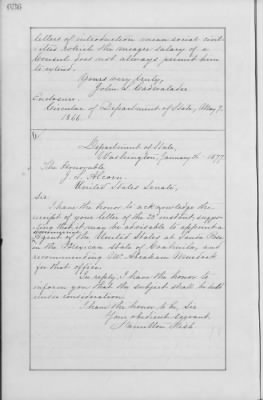 636
letters of introduction mean social civil-
ities which the meagre salary of a
Consul does not always permit him
to extend.
Yours very truly,
John L. Cadwalader
Enclosure.
Circular of Department of State, May 7,
1866.
Department of State,
Washington, January 1877.
The Honorable
J. L. Alcorn
United States Senate,
Sir:
I have the honor to acknowledge the
receipt of your letter of the 22d instant, sugges-
ting that it may be advisable to appoint a
Agent of the United States at Santa Rosa
in the Mexican State of Coahuila, and
recommending Mr. Abraham Murdock
for that office.
In reply, I have the honor to
inform you that the subject shall be held
under consideration.
I have the honor to be, Sir
Your obedient servant,
Hamilton Fish